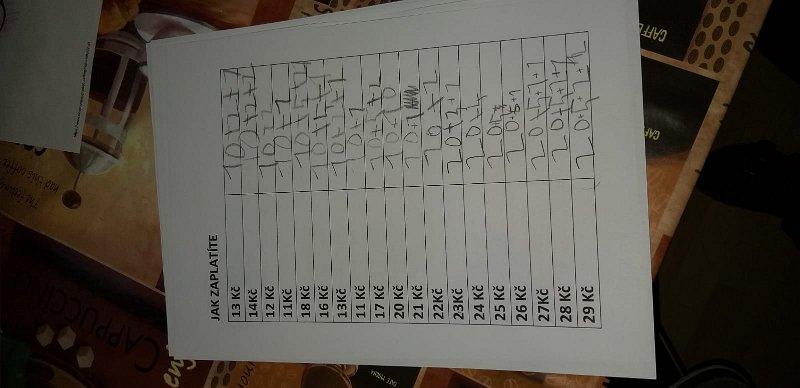 JAK ZAPLATÍTE
13 Kč 10+2+1
14Kč 10+2+2
12 Kč 10+2
11Kč 10+1
18 Kč 10+5+
16 Kč 10+
13Kč 10+2+1
11 Kč 10+1
17 Kč 10+5+2
20 Kč 10+10
21 Kč 20+1
22Kč 20+2
23Kč 20+2+1
24 Kč 20+
25 Kč 20
26 Kč 20+5+1
27Kč 20+5+1+1
28 Kč 20+5+
29 Kč 20+5+2+2
CAPPUCCINO
CAFFE